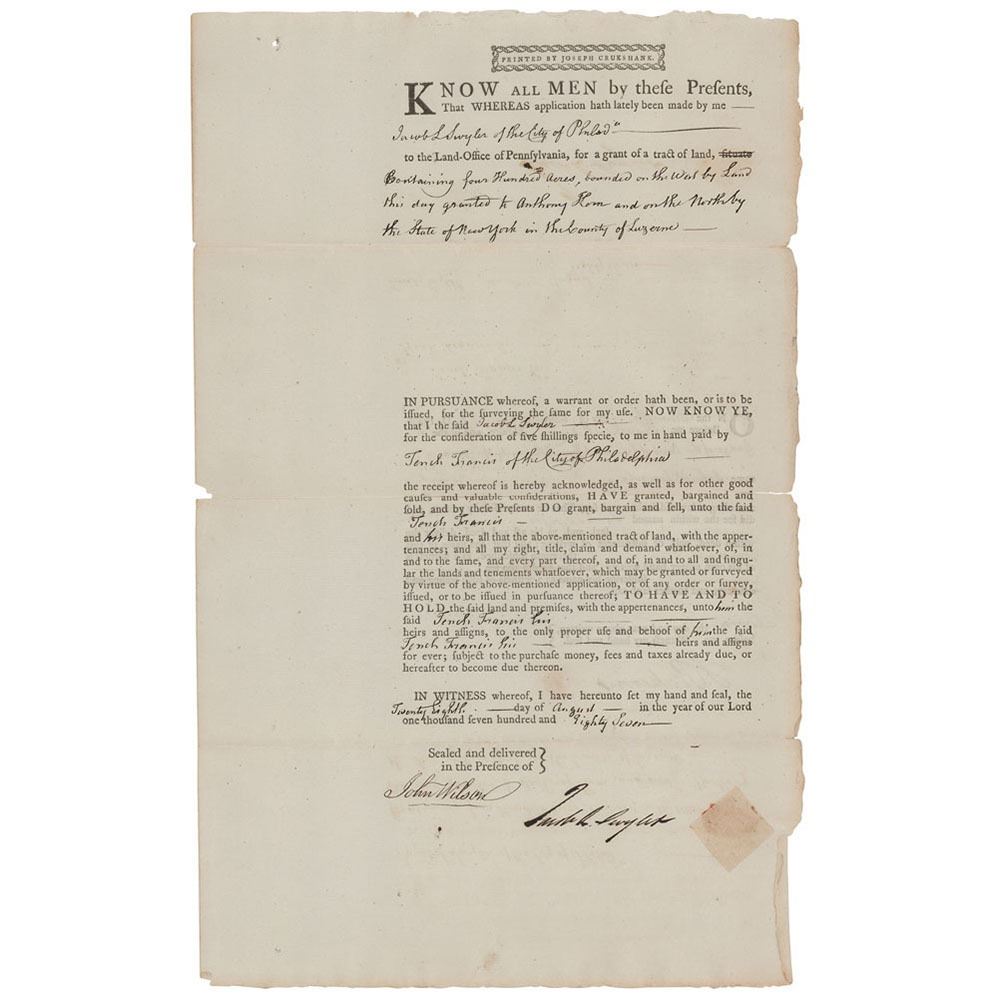 PRINTED BY JOSEPH CRUKSHANK.
KNOW ALL MEN by theſe Preſents,
That WHEREAS application hath lately been made by me
Jacob L Swyler of the City of Philad.a
to the Land-Office of Pennſylvania, for a grant of a tract of land, ſituate
Containing four Hundred Acres, bounded on the West by Land
this day granted to Anthony Hom and on the North by
the State of New York in the County of Luzerne
IN PURSUANCE whereof, a warrant or order hath been, or is to be
iſſued, for the ſurveying the ſame for my uſe. NOW KNOW YE,
that I the ſaid Jacob L Swyler
for the conſideration of five ſhillings ſpecie, to me in hand paid by
Tench Francis of the City of Philadelphia
the receipt whereof is hereby acknowledged, as well as for other good
cauſes and valuable conſiderations, HAVE granted, bargained and
ſold, and by theſe Preſents DO grant, bargain and ſell, unto the ſaid
Tench Francis
and his heirs, all that the above-mentioned tract of land, with the apper-
tenances; and all my right, title, claim and demand whatſoever, of, in
and to the ſame, and every part thereof, and of, in and to all and ſingu-
lar the lands and tenements whatſoever, which may be granted or ſurveyed
by virtue of the above-mentioned application, or of any order or ſurvey,
iſſued, or to be iſſued in purſuance thereof; TO HAVE AND TO
HOLD the ſaid land and premiſes, with the appertenances, unto him the
ſaid Tench Francis his
heirs and aſſigns, to the only proper uſe and behoof of him the ſaid
Tench Francis his heirs and aſſigns
for ever; ſubject to the purchaſe money, fees and taxes already due, or
hereafter to become due thereon.
IN WITNESS whereof, I have hereunto ſet my hand and ſeal, the
Twenty Eighth day of August in the year of our Lord
one thouſand ſeven hundred and Eighty Seven
Sealed and delivered
in the Preſence of
John Wilson
Jacob L. Swyler